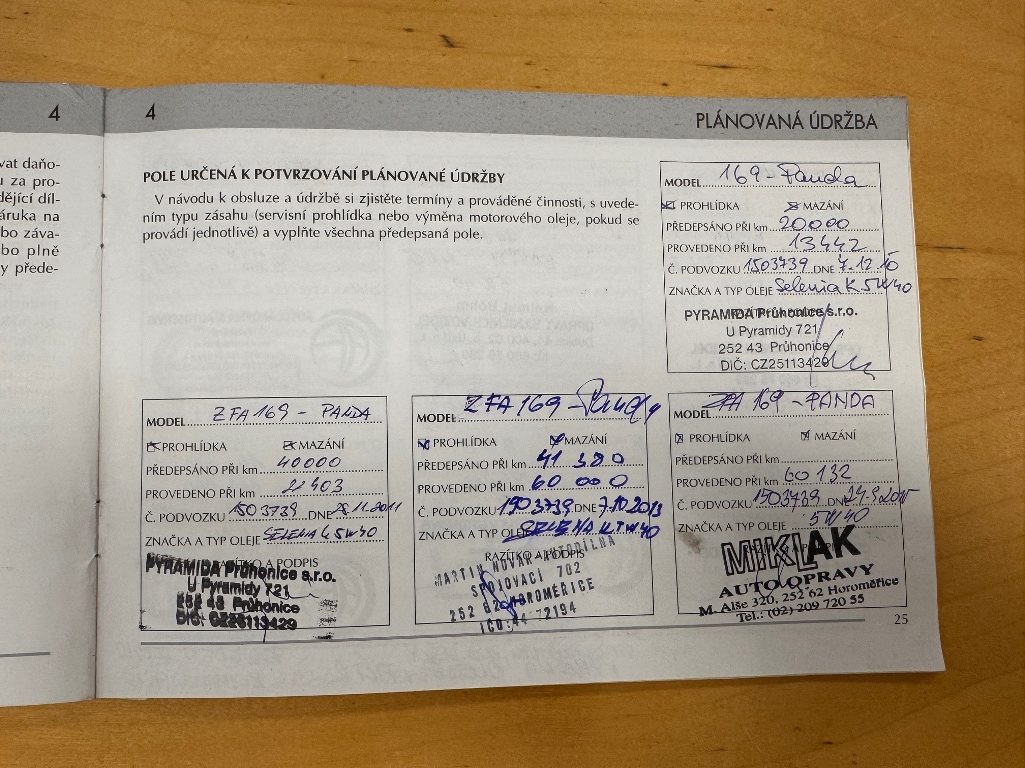 4
vat daňo-
u za pro-
dějící díl-
áruka na
bo záva-
bo plně
y přede-
4
PLÁNOVANÁ ÚDRŽBA
POLE URČENÁ K POTVRZOVÁNÍ PLÁNOVANÉ ÚDRŽBY
V návodu k obsluze a údržbě si zjistěte termíny a prováděné činnosti, s uvede-
ním typu zásahu (servisní prohlídka nebo výměna motorového oleje, pokud se
provádí jednotlivě) a vyplňte všechna předepsaná pole.
MODEL 169-Panda
PROHLÍDKA MAZÁNÍ
PŘEDEPSÁNO PŘI km 20000
PROVEDENO PŘI km 13442
Č. PODVOZKU 1503739 DNE 7.12.10
ZNAČKA A TYP OLEJE Selenia K 5W40
PYRAMIDA Průhonice s.r.o.
U Pyramidy 721
252 43 Průhonice
DIČ: CZ25113429
MODEL ZFA 169 - PANDA
PROHLÍDKA MAZÁNÍ
PŘEDEPSÁNO PŘI km 40000
PROVEDENO PŘI km 21403
Č. PODVOZKU 1503739 DNE 11.2011
ZNAČKA A TYP OLEJE SELENIA K 5W40
RAZÍTKO A PODPIS
PYRAMIDA Průhonice s.r.o.
U Pyramidy 721
252 43 Průhonice
DIČ: CZ25113429
MODEL ZFA 169 - Panda
PROHLÍDKA MAZÁNÍ
PŘEDEPSÁNO PŘI km 41 380
PROVEDENO PŘI km 60 000
Č. PODVOZKU 1503739 DNE 7.10.2013
ZNAČKA A TYP OLEJE SELENA K 5W40
RAZÍTKO A PODPIS
MARTIN NOVÁK-AUTODÍLNA
SPOJOVACÍ 702
252 62 HOROMĚŘICE
IČO:44 72194
MODEL ZFA 169 - PANDA
PROHLÍDKA MAZÁNÍ
PŘEDEPSÁNO PŘI km
PROVEDENO PŘI km 60 132
Č. PODVOZKU 1503739 DNE 24.9.2015
ZNAČKA A TYP OLEJE 5W40
MIKLAK
AUTO OPRAVY
M. Alše 320, 252 62 Horoměřice
Tel.: (02) 209 720 55
25